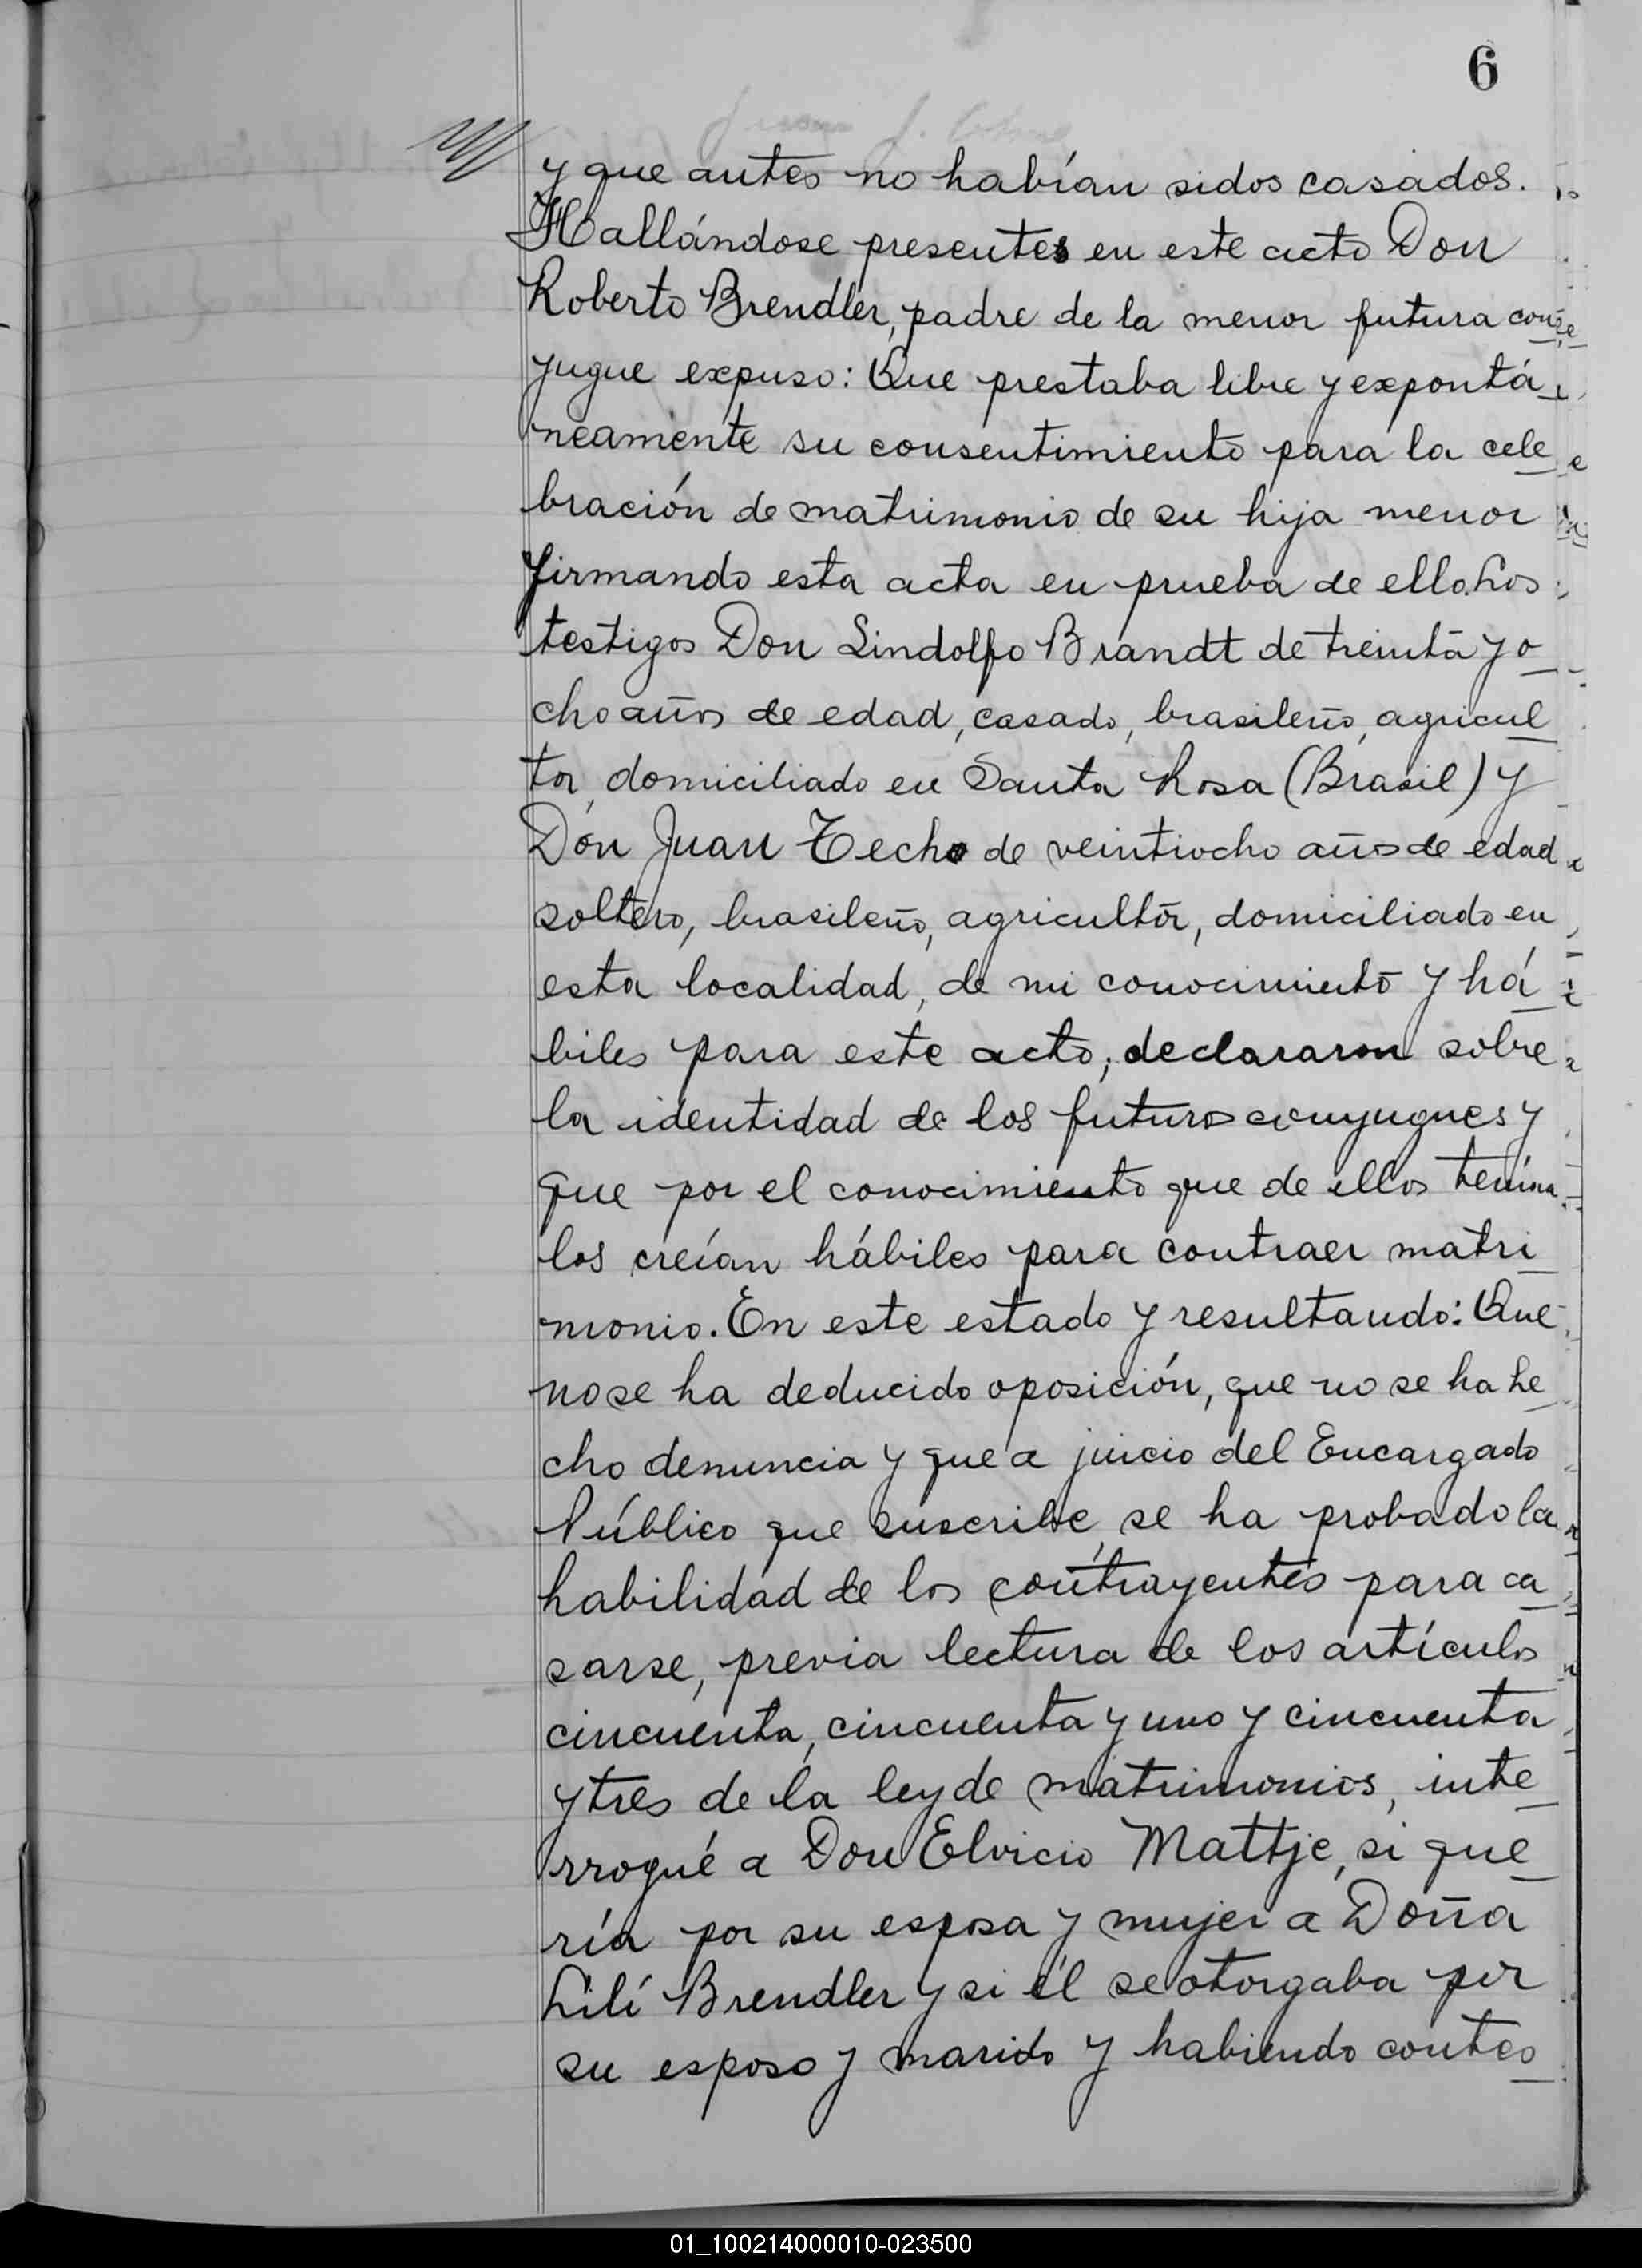 6
y que antes no habían sidos casados.
Hallándose presentes en este acto Don
Roberto Brendler, padre de la menor futura con
yugue expuso: Que prestaba libre y expontá
neamente su consentimiento para la cele
bración de matrimonio de su hija menor
firmando esta acta en prueba de ello. Los
testigos Don Lindolfo Brandt de treinta y o
cho años de edad, casado, brasileño, agricul
tor, domiciliado en Santa Rosa (Brasil) y
Don Juan Techo de veintiocho años de edad
soltero, brasileño, agricultor, domiciliado en
esta localidad, de mi conocimiento y há
biles para este acto, declararon sobre
la identidad de los futuros conyugues y
que por el conocimiento que de ellos tenían
los creían hábiles para contraer matri
monio. En este estado y resultando: Que
no se ha deducido oposición, que no se ha he
cho denuncia y que a juicio del Encargado
Público que suscribe, se ha probado la
habilidad de los contrayentes para ca
sarse, previa lectura de los artículos
cincuenta, cincuenta y uno y cincuenta
y tres de la ley de matrimonios, inte
rrogué a Don Elvicio Mattje, si que
ría por su esposa y mujer a Doña
Lilí Brendler y si él se otorgaba por
su esposo y marido y habiendo contes
01_100214000010-023500